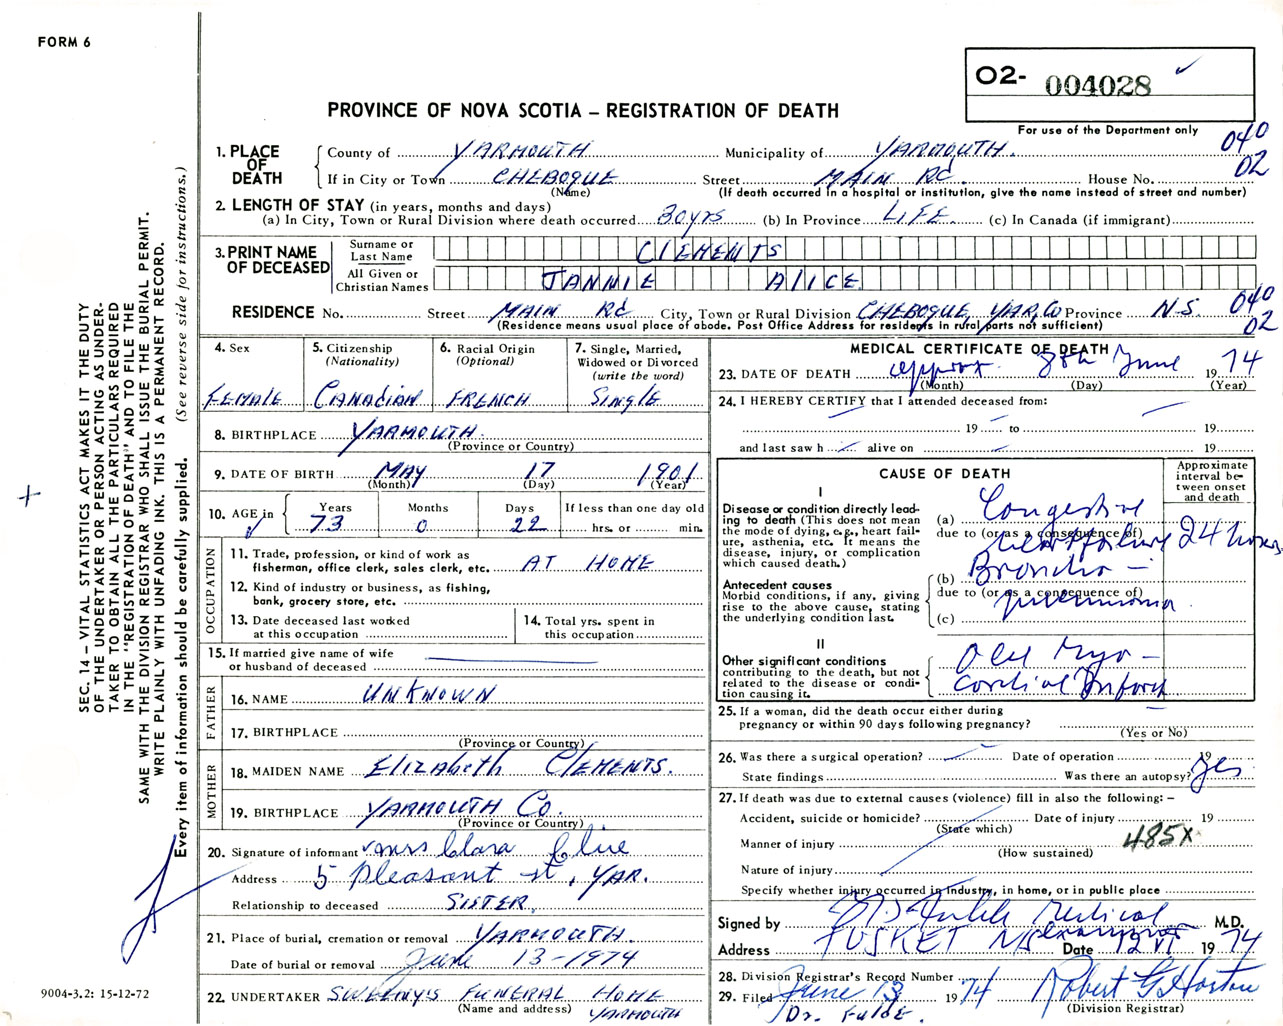 FORM 6
O2- 004028
PROVINCE OF NOVA SCOTIA – REGISTRATION OF DEATH
For use of the Department only
040
02
1. PLACE OF DEATH
County of YARMOUTH Municipality of YARMOUTH.
If in City or Town CHEBOQUE Street MAIN Rd. House No.
(Name) (If death occurred in a hospital or institution, give the name instead of street and number)
2. LENGTH OF STAY (in years, months and days)
(a) In City, Town or Rural Division where death occurred 30 yrs (b) In Province LIFE. (c) In Canada (if immigrant)
3. PRINT NAME OF DECEASED
Surname or Last Name CLEMENTS
All Given or Christian Names JANNIE ALICE
RESIDENCE No. Street MAIN Rd City, Town or Rural Division CHEBOQUE, YAR, Co Province N.S. 040
(Residence means usual place of abode. Post Office Address for residents in rural parts not sufficient) 02
4. Sex
FEMALE
5. Citizenship
(Nationality)
CANADIAN
6. Racial Origin
(Optional)
FRENCH
7. Single, Married,
Widowed or Divorced
(write the word)
SINGLE
8. BIRTHPLACE YARMOUTH.
(Province or Country)
9. DATE OF BIRTH MAY 17 1901
(Month) (Day) (Year)
10. AGE in Years Months Days If less than one day old
73 0 22 hrs. or min.
OCCUPATION
11. Trade, profession, or kind of work as
fisherman, office clerk, sales clerk, etc. AT HOME
12. Kind of industry or business, as fishing,
bank, grocery store, etc.
13. Date deceased last worked
at this occupation
14. Total yrs. spent in
this occupation
15. If married give name of wife
or husband of deceased
FATHER
16. NAME UNKNOWN
17. BIRTHPLACE
(Province or Country)
MOTHER
18. MAIDEN NAME Elizabeth CLEMENTS.
19. BIRTHPLACE YARMOUTH Co.
(Province or Country)
20. Signature of informant Mrs Clara Clue
Address 5 Pleasant st, YAR.
Relationship to deceased SISTER.
21. Place of burial, cremation or removal YARMOUTH.
Date of burial or removal June 13-1974
22. UNDERTAKER SWEENY'S FUNERAL HOME
(Name and address) YARMOUTH
MEDICAL CERTIFICATE OF DEATH
23. DATE OF DEATH approx. 8th June 1974
(Month) (Day) (Year)
24. I HEREBY CERTIFY that I attended deceased from:
19 to 19
and last saw h alive on 19
CAUSE OF DEATH
Approximate
interval be-
tween onset
and death
I
Disease or condition directly lead-
ing to death (This does not mean
the mode of dying, e.g., heart fail-
ure, asthenia, etc. It means the
disease, injury, or complication
which caused death.)
(a) Congestive
due to (or as a consequence of)
heart failure 24 hours.
Antecedent causes
Morbid conditions, if any, giving
rise to the above cause, stating
the underlying condition last.
(b) Broncho –
due to (or as a consequence of)
pneumonia
(c)
II
Other significant conditions
contributing to the death, but not
related to the disease or condi-
tion causing it.
Old Myo –
cardial Infarct
25. If a woman, did the death occur either during
pregnancy or within 90 days following pregnancy?
(Yes or No)
26. Was there a surgical operation? Date of operation 19
State findings Was there an autopsy? Yes
27. If death was due to external causes (violence) fill in also the following: –
Accident, suicide or homicide? Date of injury 19
(State which)
Manner of injury 485X
(How sustained)
Nature of injury
Specify whether injury occurred in industry, in home, or in public place
Signed by Medical M.D.
examiner
Address TUSKET N/S Date 12 VI 1974
28. Division Registrar's Record Number
29. Filed June 13 1974 Robert G Horton
(Division Registrar)
Dr. Fulde.
SEC. 14 – VITAL STATISTICS ACT MAKES IT THE DUTY
OF THE UNDERTAKER OR PERSON ACTING AS UNDER-
TAKER TO OBTAIN ALL THE PARTICULARS REQUIRED
IN THE "REGISTRATION OF DEATH" AND TO FILE THE
SAME WITH THE DIVISION REGISTRAR WHO SHALL ISSUE THE BURIAL PERMIT.
WRITE PLAINLY WITH UNFADING INK. THIS IS A PERMANENT RECORD.
Every item of information should be carefully supplied. (See reverse side for instructions.)
9004-3.2: 15-12-72